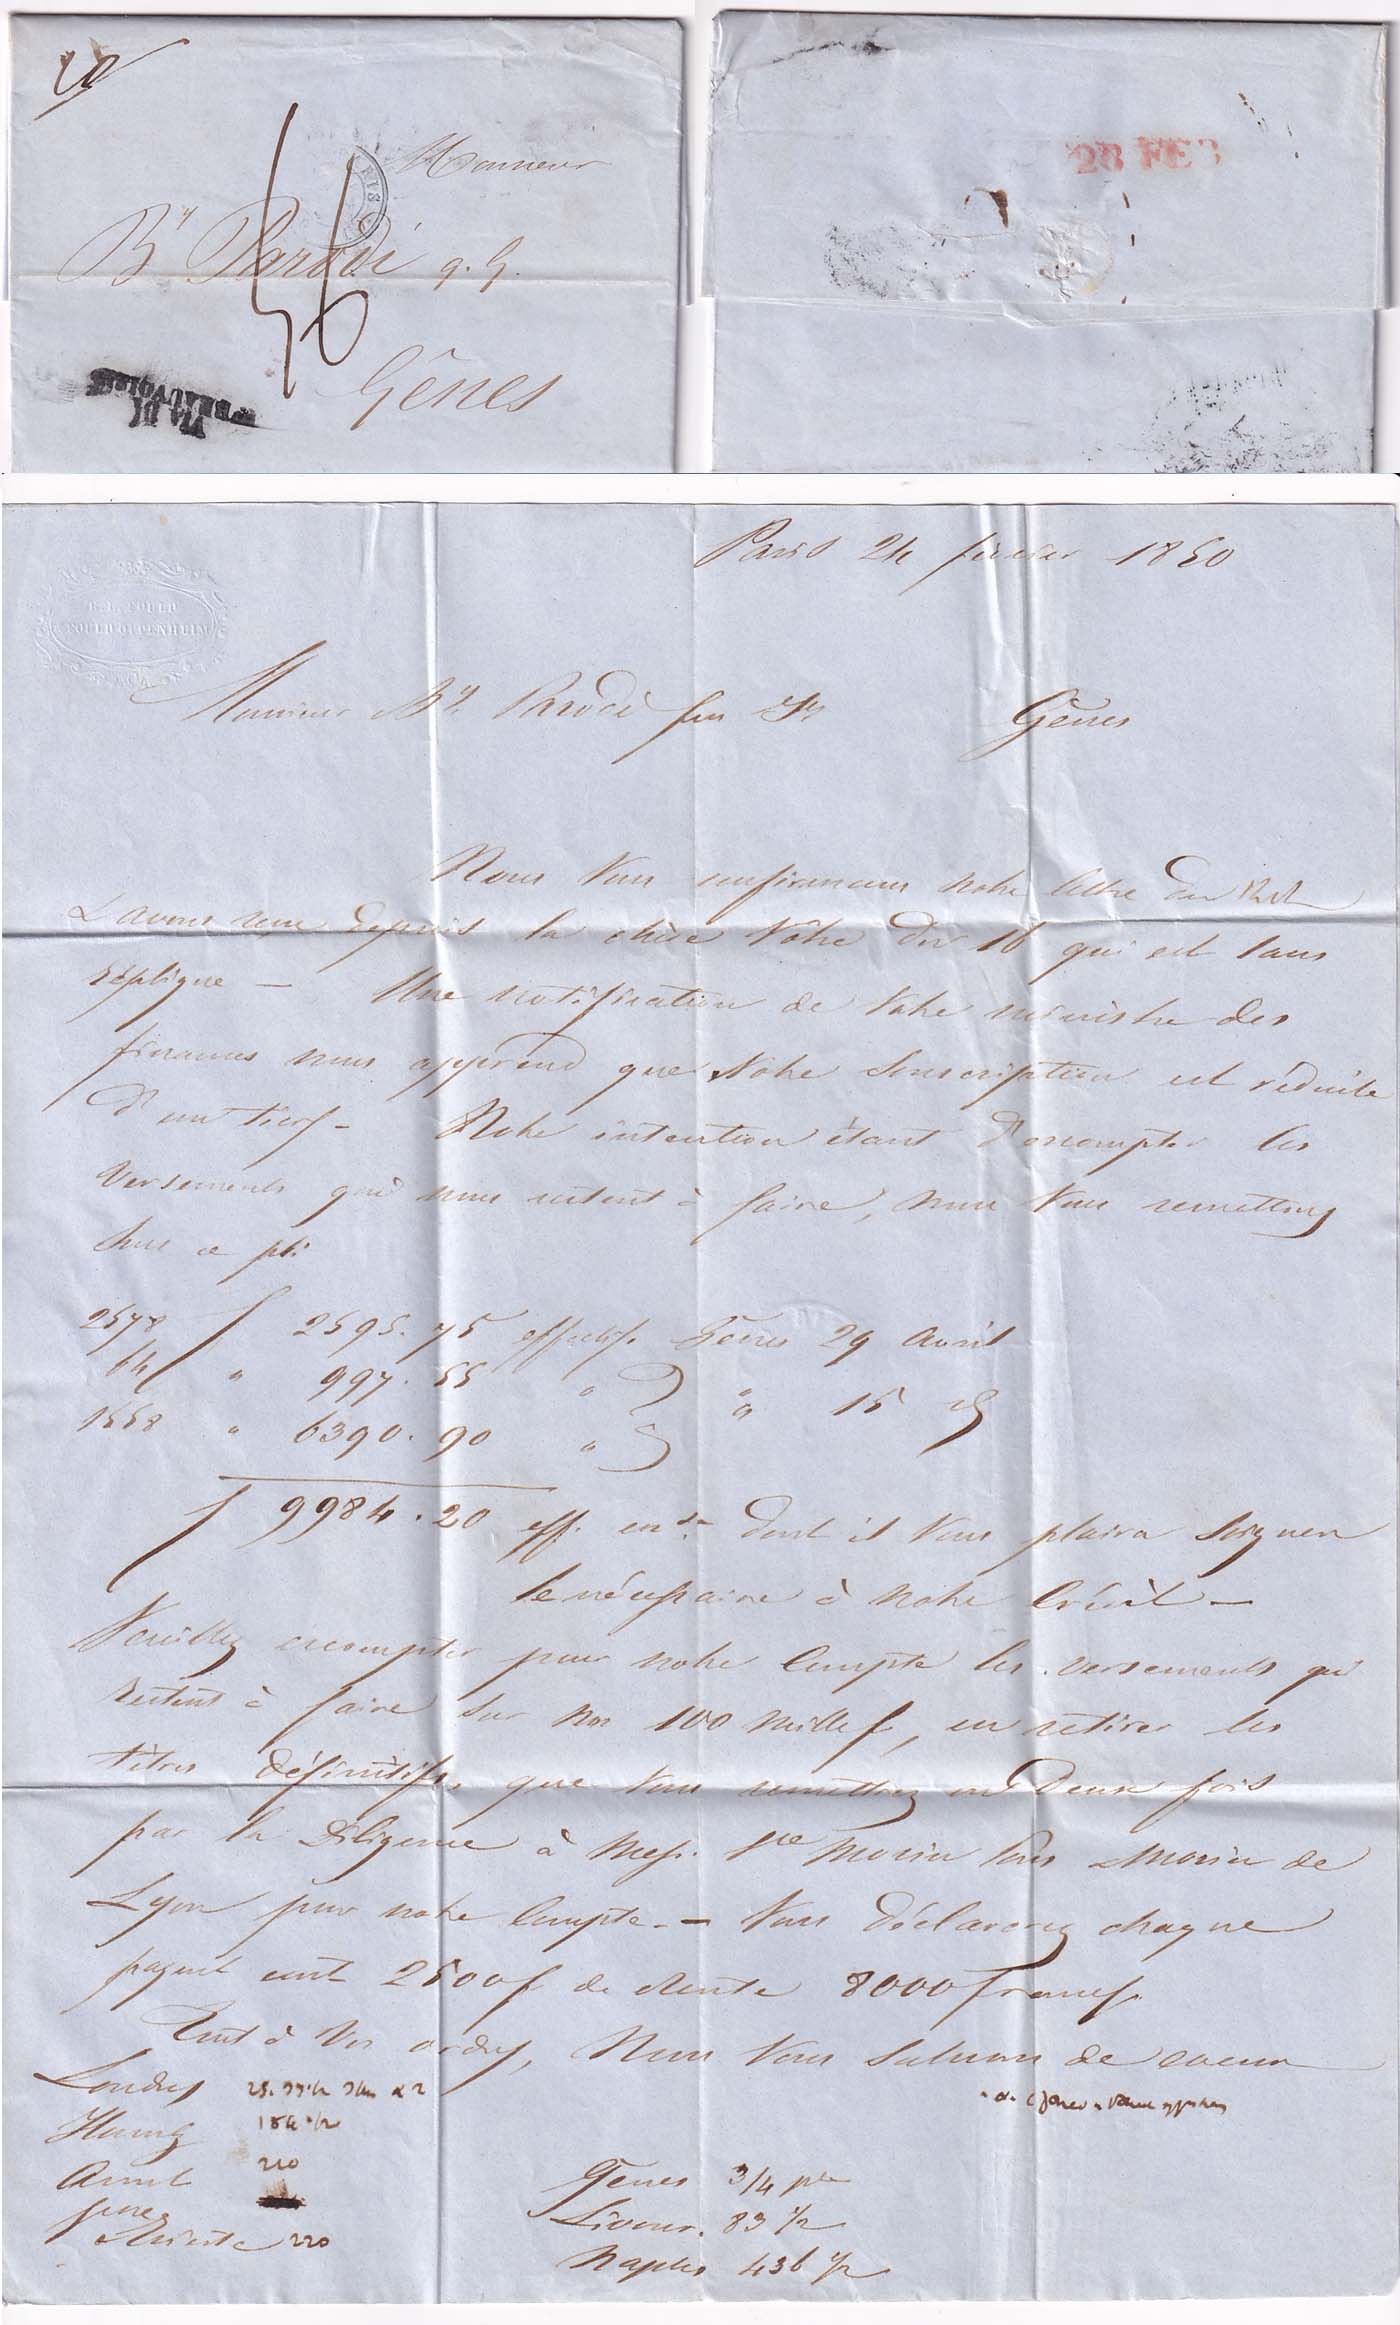 Monsieur
By Parodi q. G.
Gênes
VIA DI
Pt BEAUVOISIN
28 FEB
Paris 24 février 1850
B. L. FOULD
& FOULD OPPENHEIM
PARIS
Monsieur By Parodi feu
Gênes
Nous Vous confirmons notre lettre du
& avons reçu depuis la chère Vôtre du 16 qui est sans
réplique — Une notification de Votre ministre des
finances nous apprend que Notre Souscription est réduite
d'un tiers — Notre intention étant d'escompter les
versements qui nous restent à faire, nous Vous remettons
sous ce pli
2578 f 2595.75 effectifs Gênes 29 avril
64 " 997.55 " " 15
1558 " 6390.90 "
f 9984.20 eff. ens. dont il Vous plaira Soigner
le nécessaire à notre Crédit —
Veuillez escompter pour notre Compte les versements qui
restent à faire sur nos 100 mille f, en retirer les
titres définitifs, que Vous remettrez en Deux fois
par la Diligence à Mess. Vve Morin Pons & Morin de
Lyon pour notre Compte — Vous déclarerez chaque
paquet cont 2500 f de Rente 8000 francs
Tout à Vos ordres, Nous Vous Saluons de coeur
Londres
Hambg
Amst 210
Trieste 220
Gênes 3/4 pte
Livour. 83 1/2
Naples 436 1/2